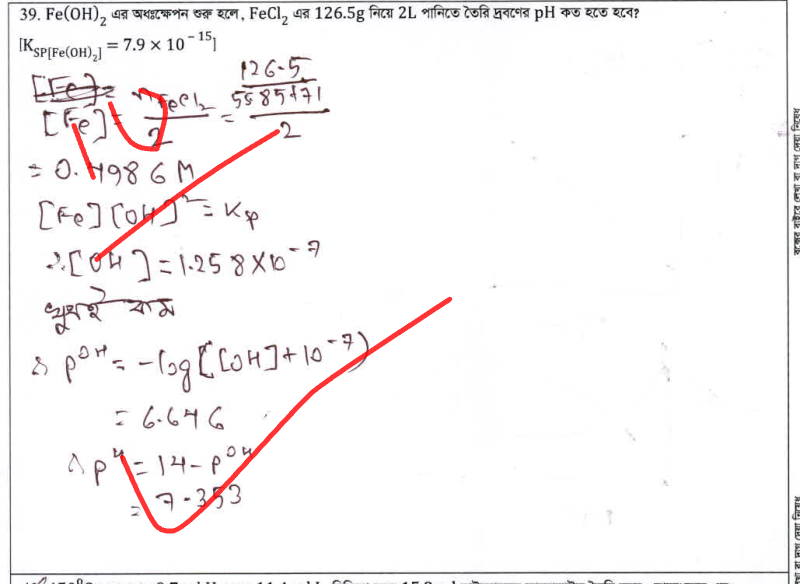 39. Fe(OH)₂ এর অধঃক্ষেপন শুরু হলে, FeCl₂ এর 126.5g নিয়ে 2L পানিতে তৈরি দ্রবণের pH কত হতে হবে?
[K_SP[Fe(OH)₂] = 7.9 × 10⁻¹⁵]
[Fe] =
[Fe] = nFeCl₂/2 = (126.5/(55.85+71))/2
= 0.4986 M
[Fe][OH]² = Ksp
∴ [OH] = 1.258×10⁻⁷
খুবই কম
∴ pOH = -log([OH]+10⁻⁷)
= 6.646
∴ pH = 14-pOH
= 7.353